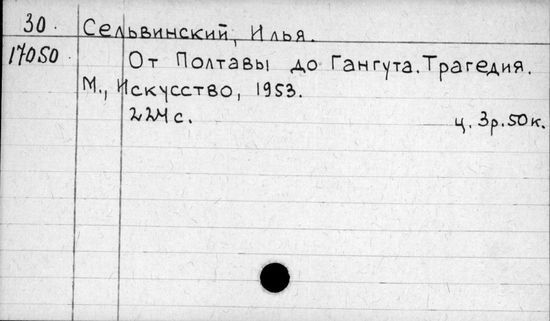 30. Сельвинский, Илья.
17050 От Полтавы до Гангута. Трагедия.
М., Искусство, 1953.
224 с. ц. 3р.50к.